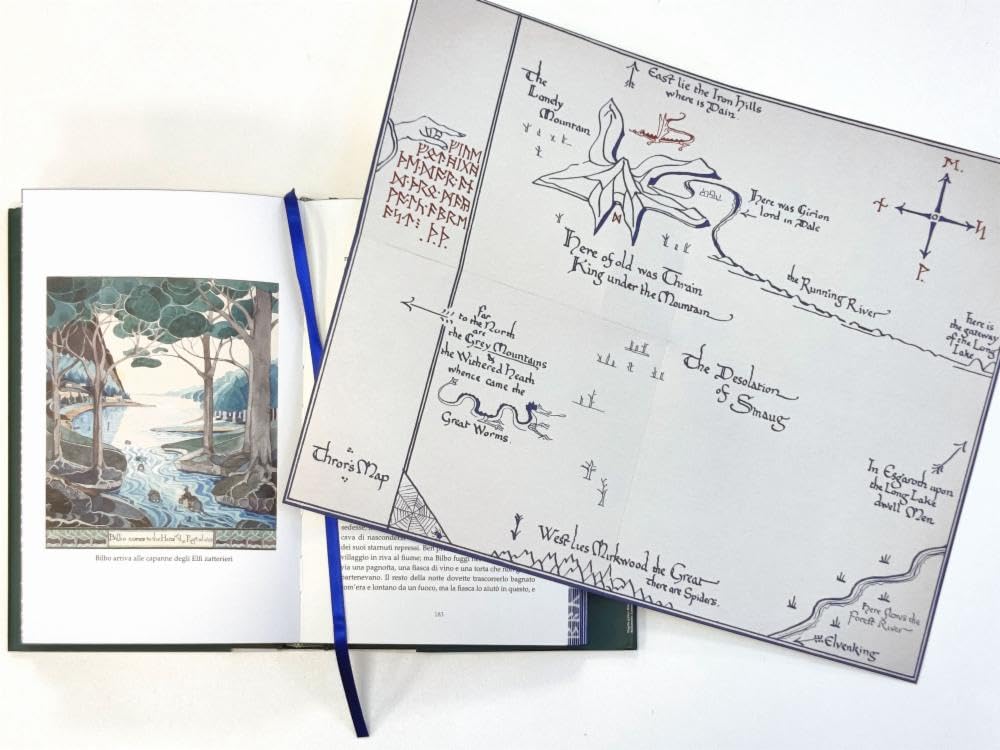 East lie the Iron Hills
where is Dain.
The
Lonely
Mountain
Here was Girion
lord in Dale
Here of old was Thrain
King under the Mountain
the Running River
here is
the gateway
of the Long
Lake
Far
to the North
are
the Grey Mountains
&
the Withered Heath
whence came the
Great Worms.
The Desolation
of Smaug
In Esgaroth upon
the Long Lake
dwell Men
Thror's Map
West lies Mirkwood the Great
there are Spiders.
here flows the
Forest River
Elvenking
Bilbo comes to the Huts of the Raft-elves
Bilbo arriva alle capanne degli Elfi zatterieri
sedesse,
cava di nascondersi
dei suoi starnuti repressi. Ben
villaggio in riva al fiume; ma Bilbo
via una pagnotta, una fiasca di vino e una torta che non
partenevano. Il resto della notte dovette trascorrerlo bagnato
com'era e lontano da un fuoco, ma la fiasca lo aiutò in questo, e
183